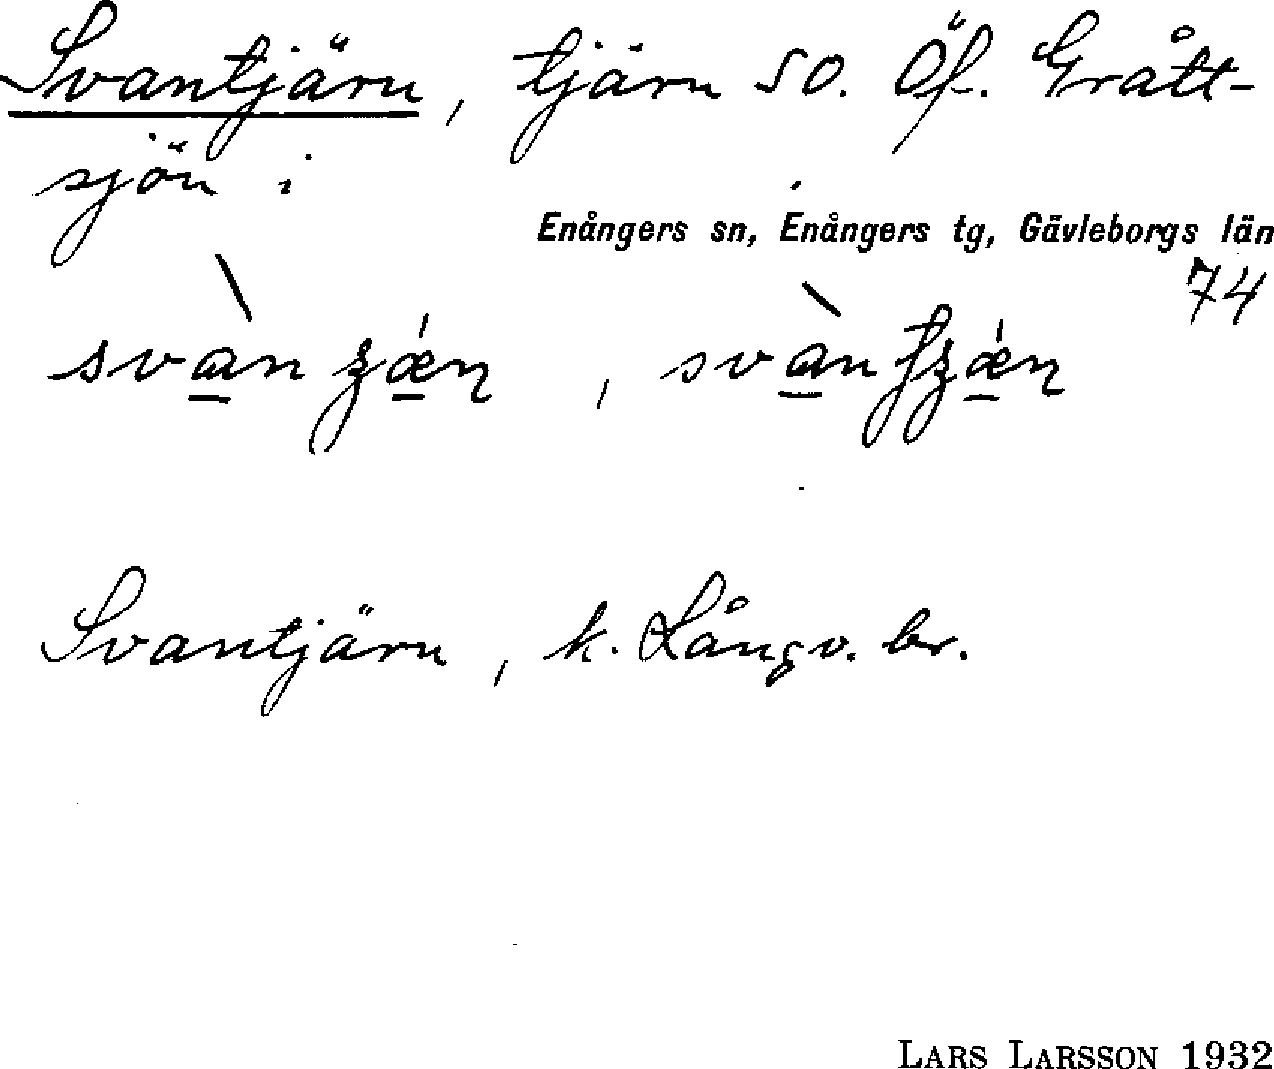 Svantjärn, tjärn SO. Öf. Grått-
sjön i
Enångers sn, Enångers tg, Gävleborgs län
74
Svantjärn, k. Långv. br.
LARS LARSSON 1932